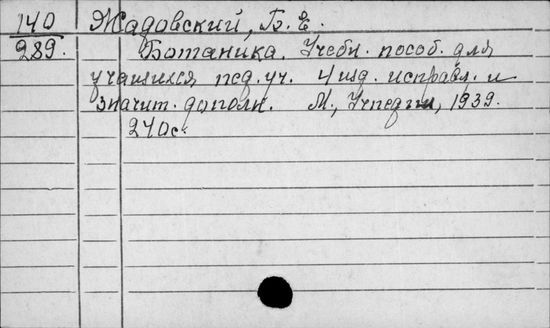 140 Жадовский, Б. Е.
289. Ботаника. Учебн. пособ. для
учащихся пед. уч. 4 изд. исправл. и
значит. дополн. М., Учпедгиз, 1939.
240с.